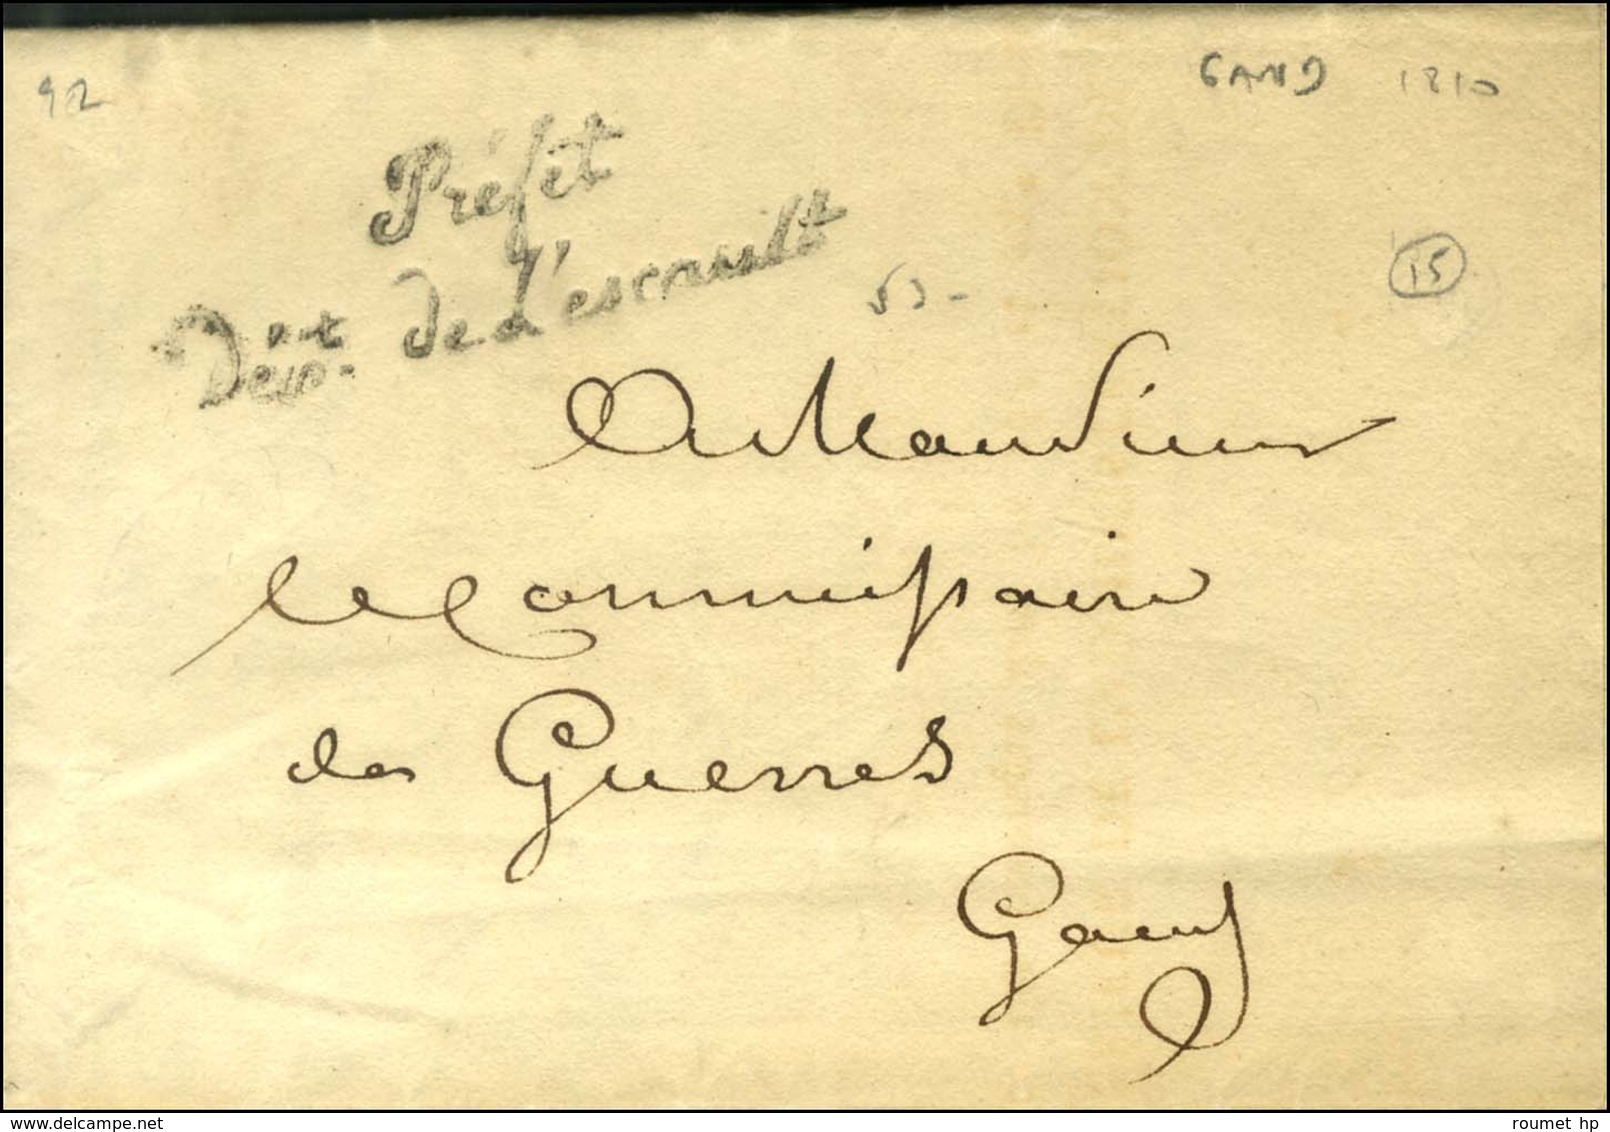 92
GAND 1810
Préfet
Dépt. de l'escault
53-
15
A Monsieur
le Commissaire
des Guerres
Gand
delcampe.net
roumet hp